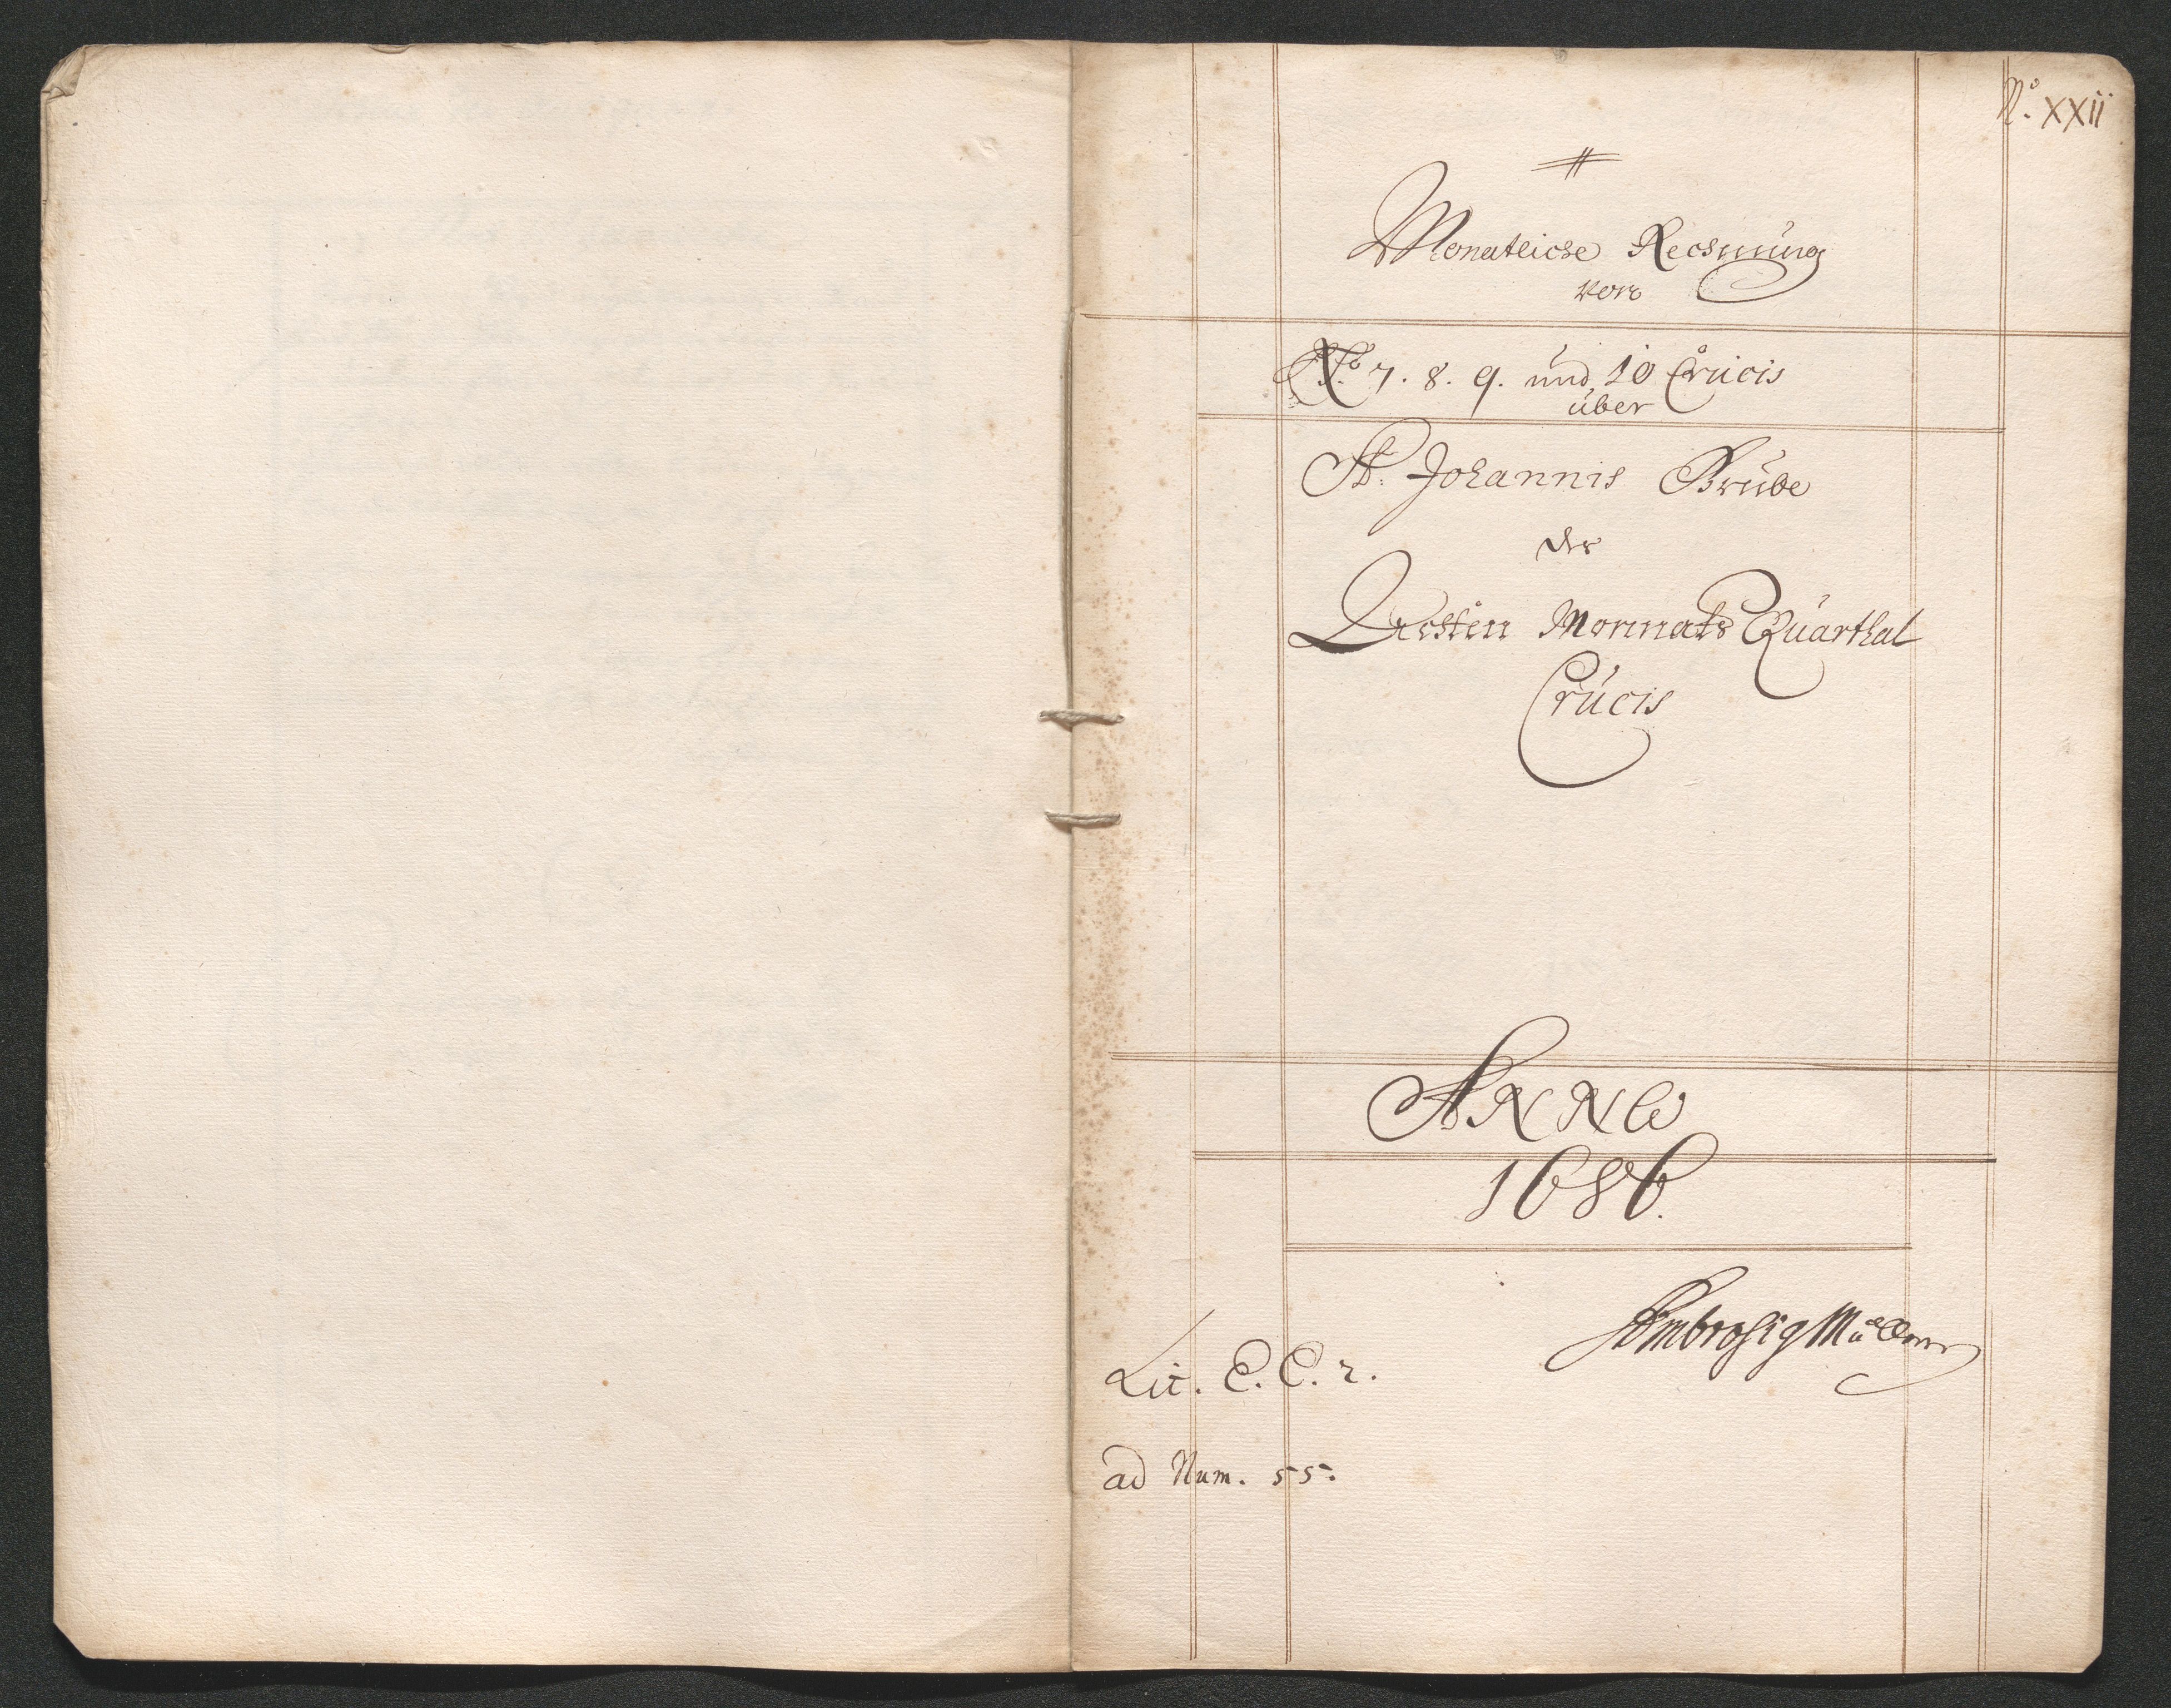 No. XXII
Monatliche Rechnung
von
No 7. 8. 9. und 10 Crucis
über
St: Johannis Grube
des
Lesten Monnats Quarthal
Crucis
ANNO
1686.
Ambrosig Müller
Lit. C. C. 2.
ad Num. 55.